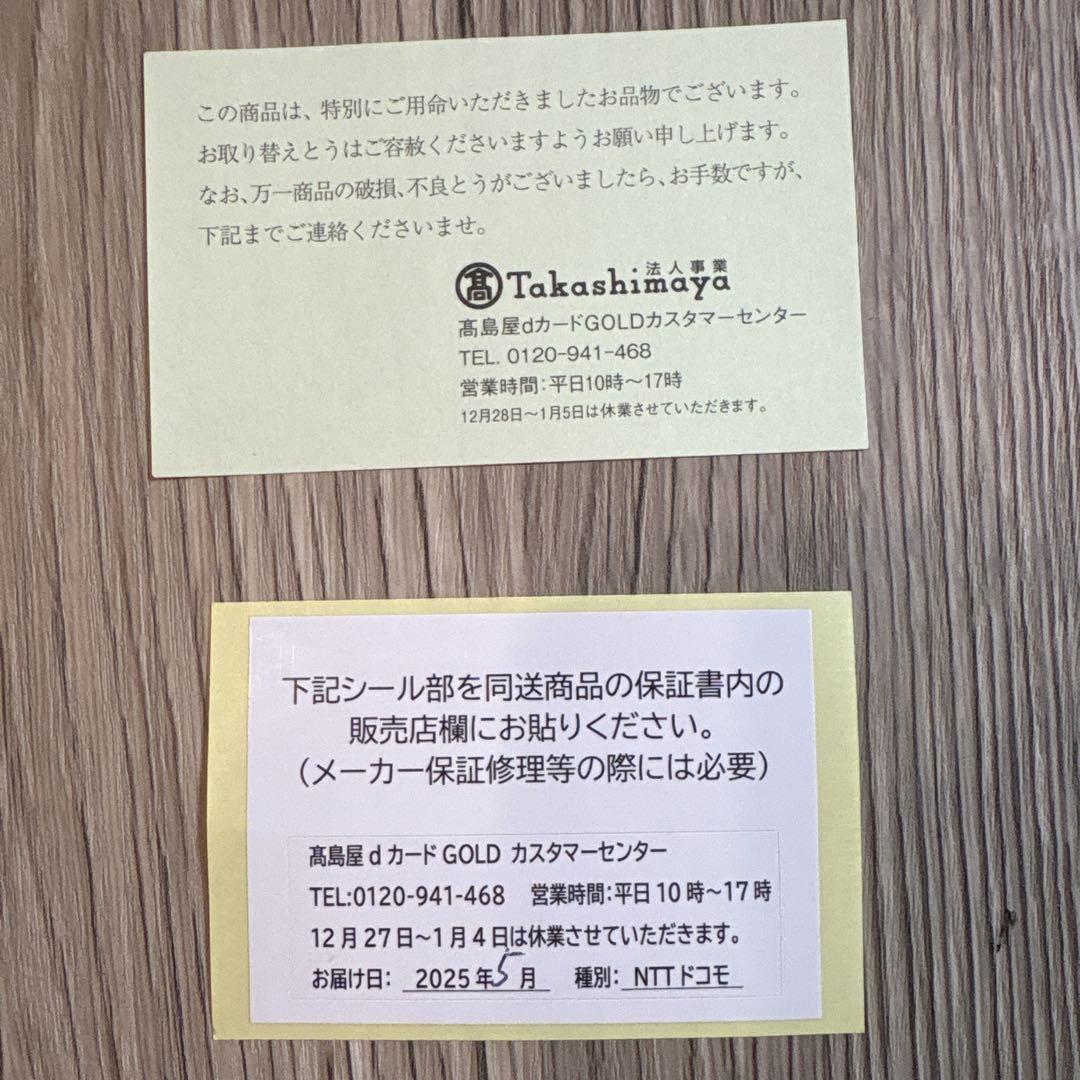 この商品は、特別にご用命いただきましたお品物でございます。
お取り替えとうはご容赦くださいますようお願い申し上げます。
なお、万一商品の破損、不良とうがございましたら、お手数ですが、
下記までご連絡くださいませ。
法人事業
髙 Takashimaya
髙島屋dカードGOLDカスタマーセンター
TEL. 0120-941-468
営業時間：平日10時～17時
12月28日～1月5日は休業させていただきます。
下記シール部を同送商品の保証書内の
販売店欄にお貼りください。
（メーカー保証修理等の際には必要）
髙島屋 d カード GOLD カスタマーセンター
TEL:0120-941-468 営業時間：平日 10 時～17 時
12 月 27 日～1 月 4 日は休業させていただきます。
お届け日： 2025 年 5 月 種別： NTT ドコモ